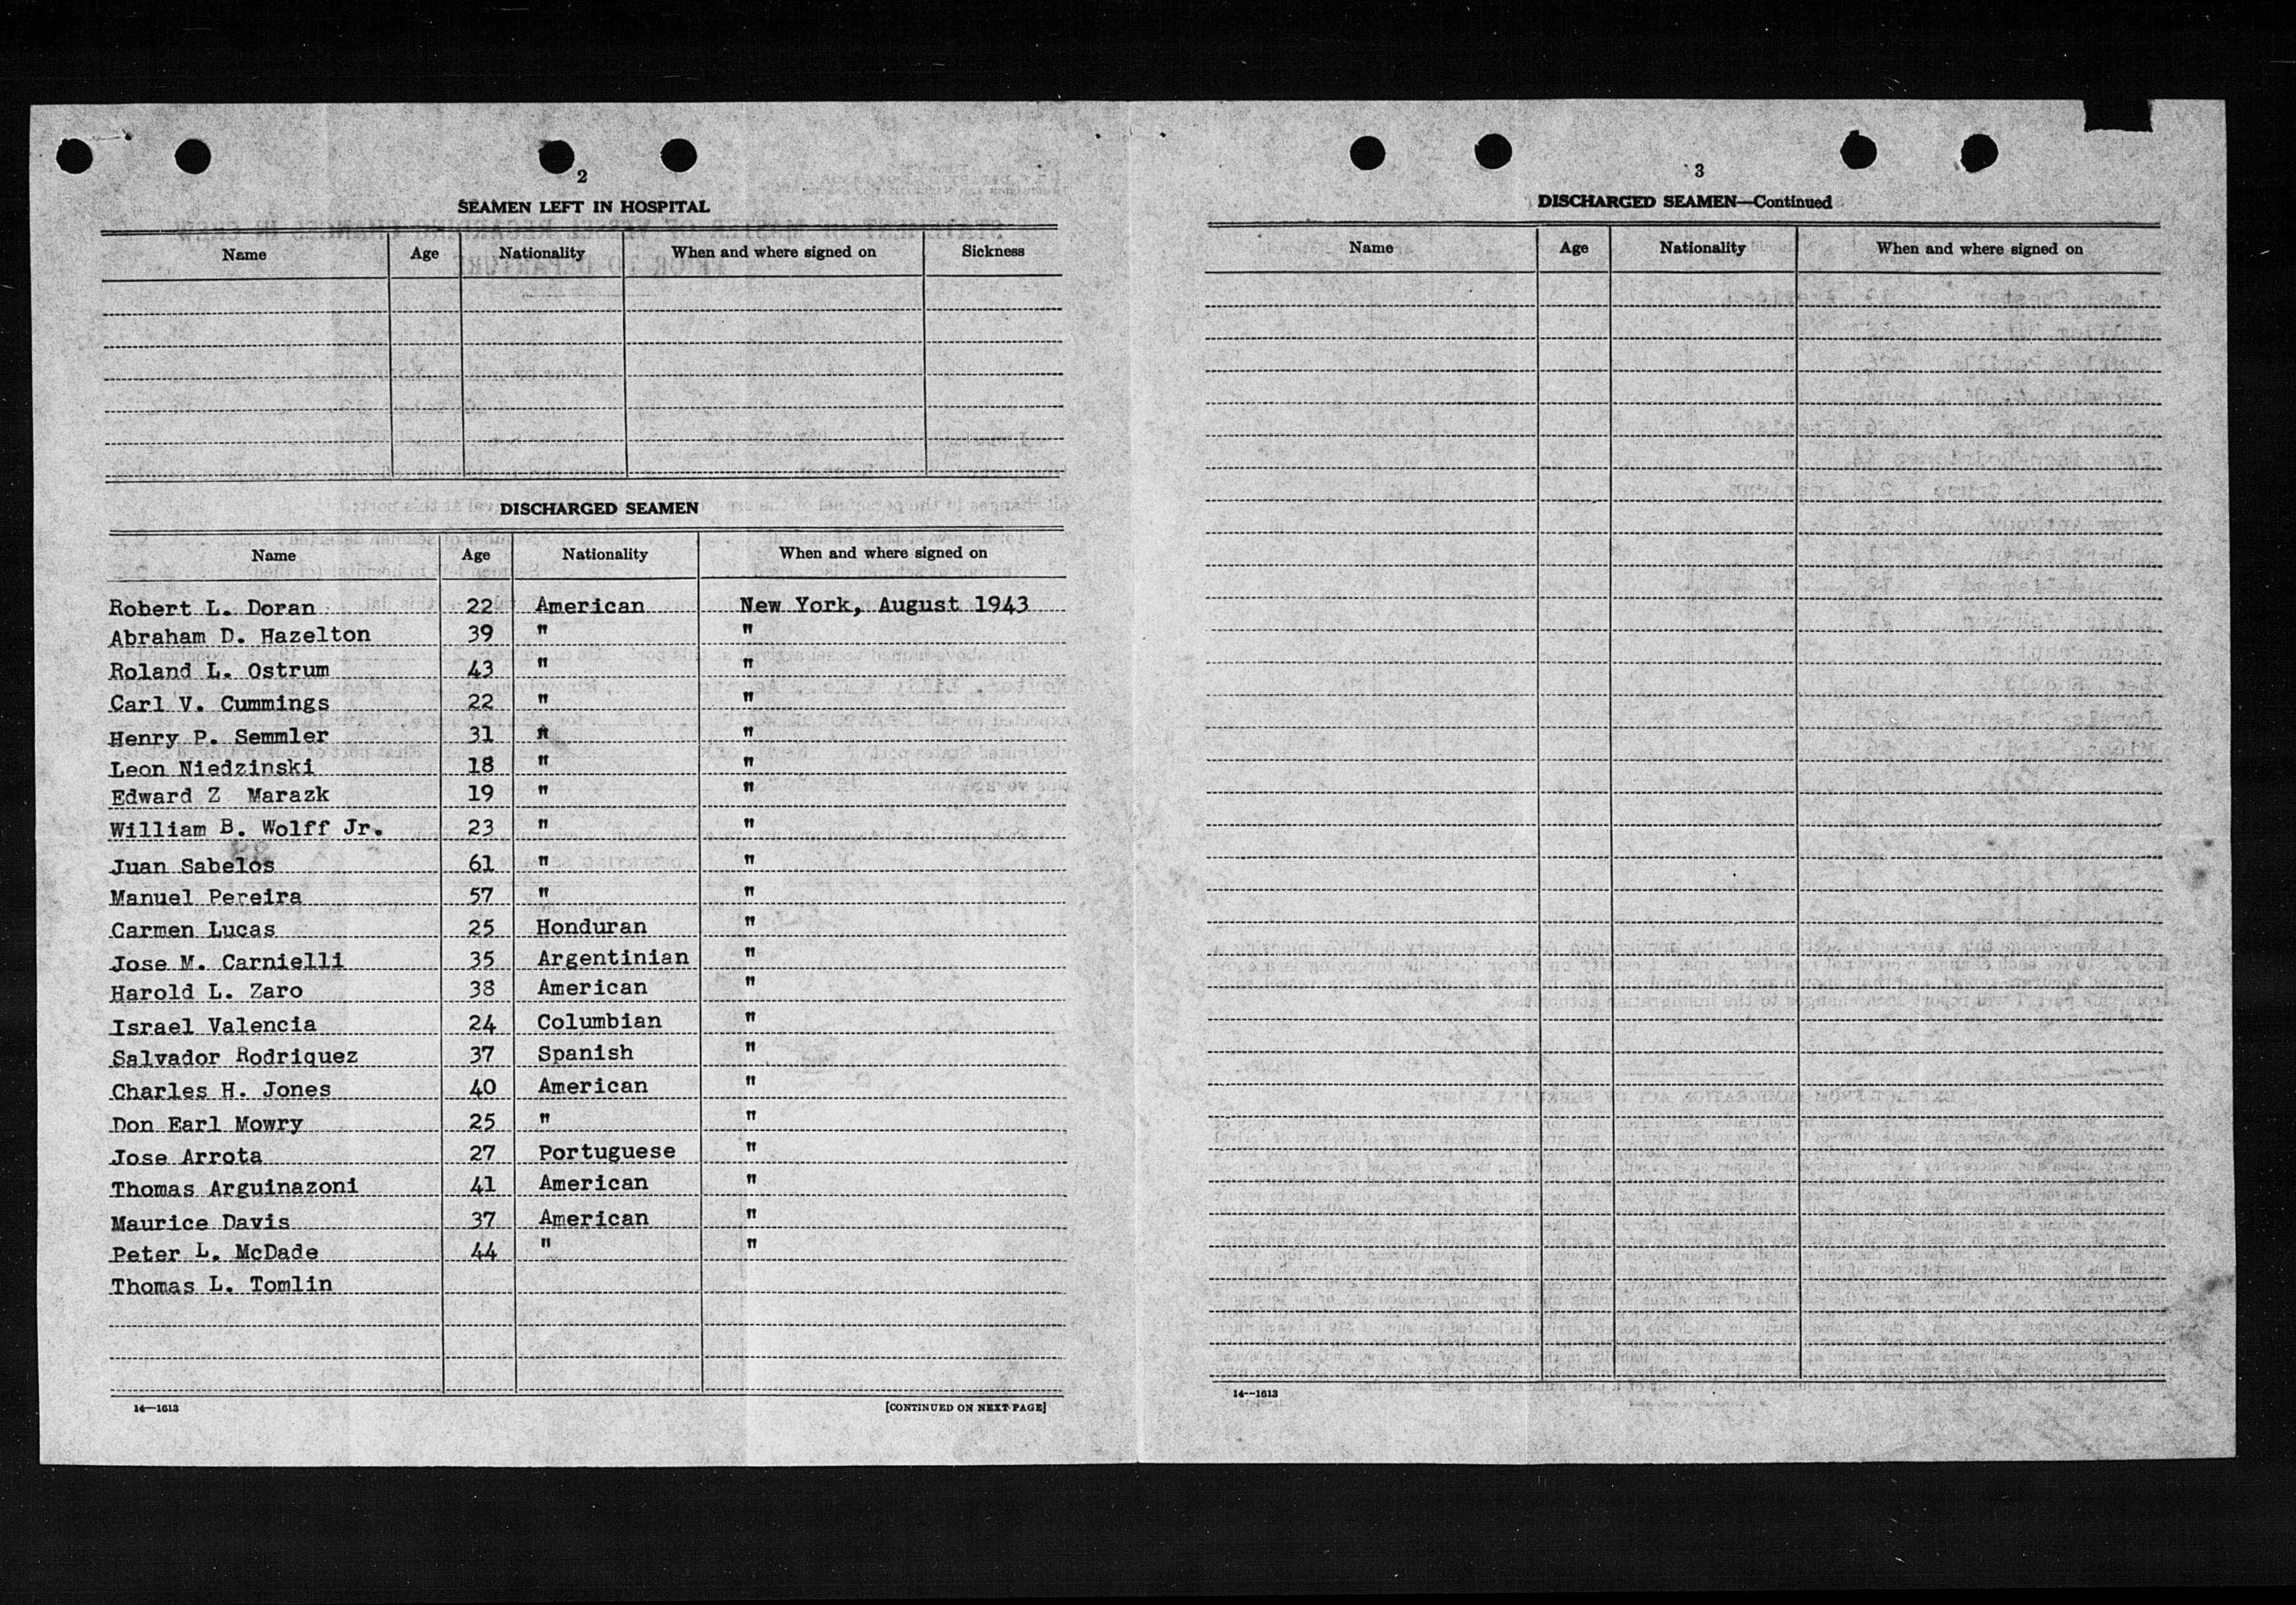 2
SEAMEN LEFT IN HOSPITAL
Name Age Nationality When and where signed on Sickness
DISCHARGED SEAMEN
Name Age Nationality When and where signed on
Robert L. Doran 22 American New York, August 1943
Abraham D. Hazelton 39 " "
Roland L. Ostrum 43 " "
Carl V. Cummings 22 " "
Henry P. Semmler 31 " "
Leon Niedzinski 18 " "
Edward Z Marazk 19 " "
William B. Wolff Jr. 23 " "
Juan Sabelos 61 " "
Manuel Pereira 57 " "
Carmen Lucas 25 Honduran "
Jose M. Carnielli 35 Argentinian "
Harold L. Zaro 38 American "
Israel Valencia 24 Columbian "
Salvador Rodriquez 37 Spanish "
Charles H. Jones 40 American "
Don Earl Mowry 25 " "
Jose Arrota 27 Portuguese "
Thomas Arguinazoni 41 American "
Maurice Davis 37 American "
Peter L. McDade 44 " "
Thomas L. Tomlin
14—1613 [CONTINUED ON NEXT PAGE]
3
DISCHARGED SEAMEN—Continued
Name Age Nationality When and where signed on
14—1613